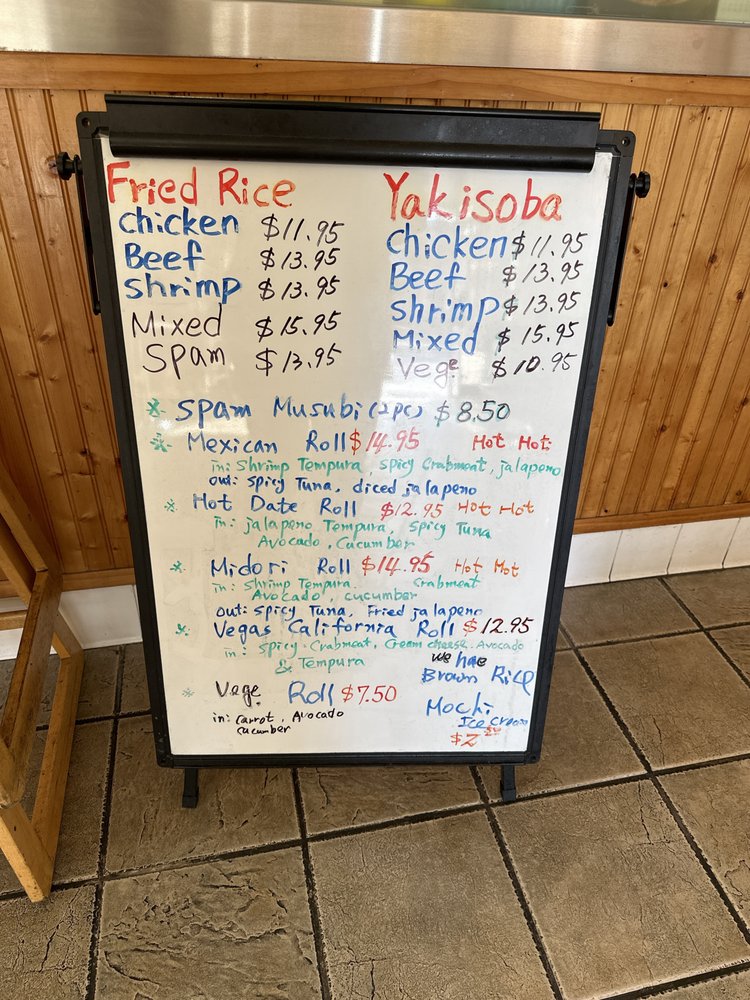 Fried Rice
chicken $11.95
Beef $13.95
shrimp $13.95
Mixed $15.95
Spam $13.95
Yakisoba
Chicken $11.95
Beef $13.95
shrimp $13.95
Mixed $15.95
Vege $10.95
* Spam Musubi (2pc) $8.50
* Mexican Roll $14.95 Hot Hot
in: Shrimp Tempura, spicy Crabmeat, jalapeno
out: spicy Tuna, diced jalapeno
* Hot Date Roll $12.95 Hot Hot
in: jalapeno Tempura, Spicy Tuna
Avocado, Cucumber
* Midori Roll $14.95 Hot Hot
in: Shrimp Tempura, Crabmeat
Avocado, cucumber
out: spicy Tuna, Fried jalapeno
* Vegas California Roll $12.95
in: Spicy Crabmeat, Cream cheese, Avocado
& Tempura
* Vege Roll $7.50
in: carrot, Avocado
cucumber
we hae
Brown Rice
Mochi
Ice Cream